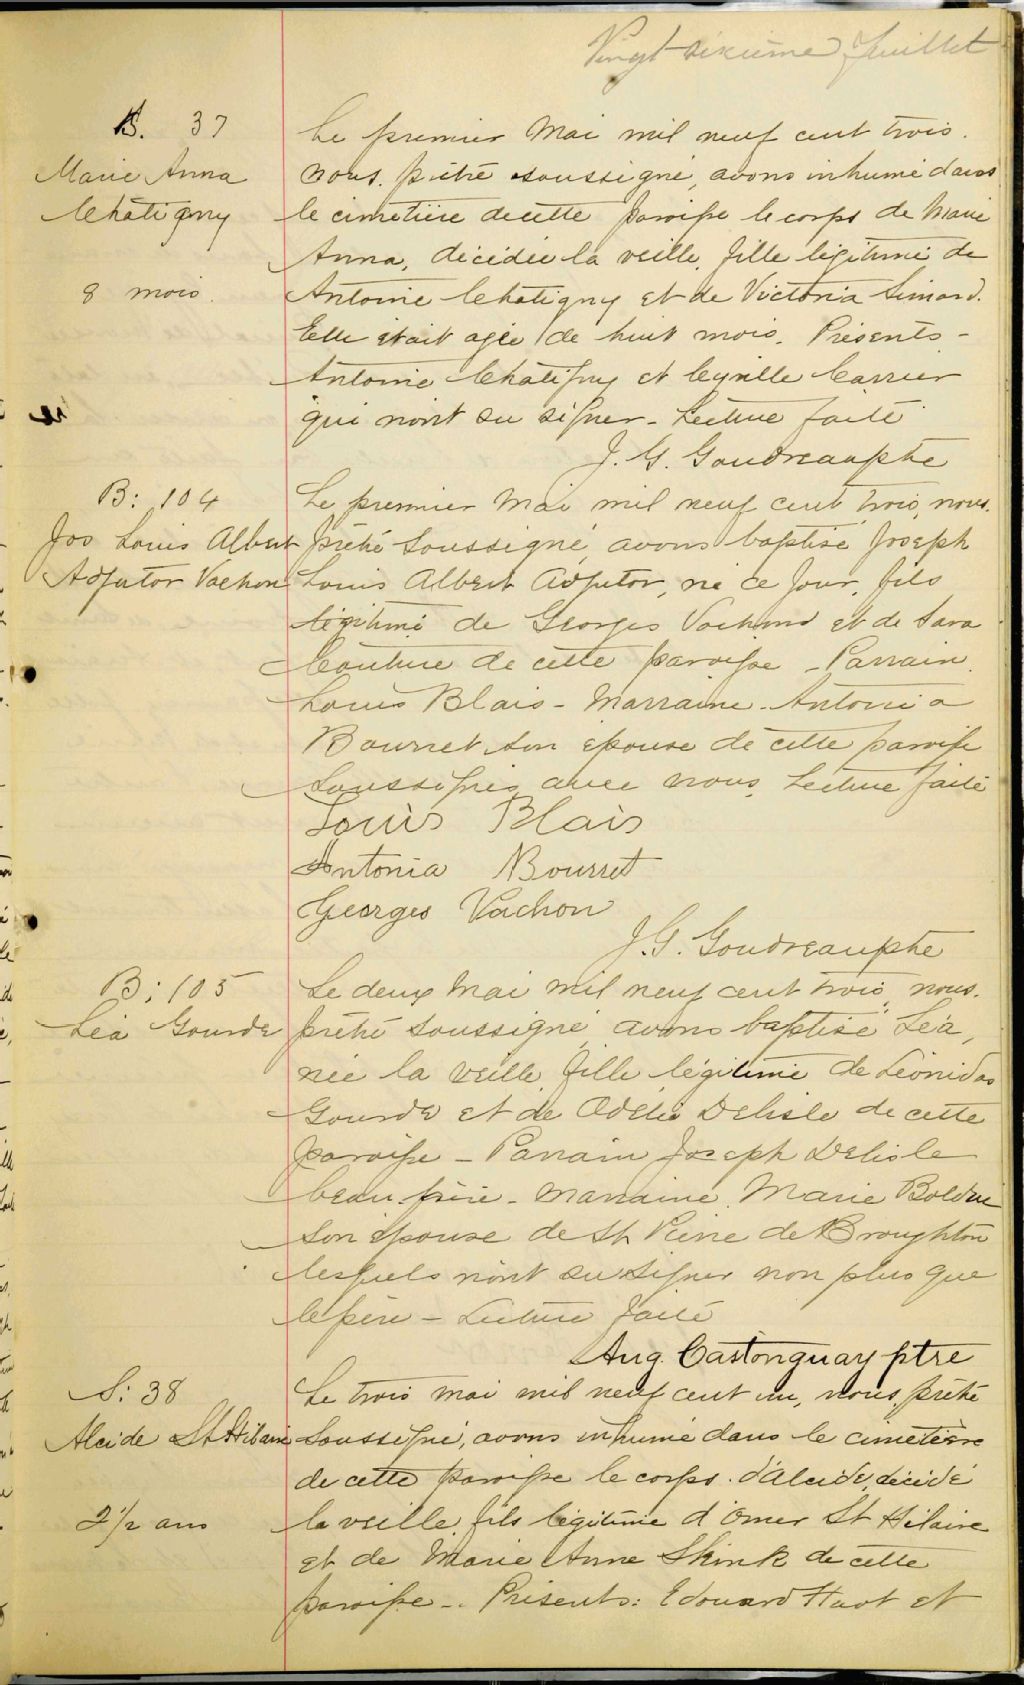 Vingt sixième Juillet
S. 37
Marie Anna
Chatigny
8 mois.
Le premier Mai mil neuf cent trois.
nous. prêtre soussigné, avons inhumé dans
le cimetière de cette paroisse le corps de Marie
Anna, décédée la veille, fille légitime de
Antoine Chatigny et de Victoria Simard.
Elle était agée de huit mois. Présents -
Antoine Chatigny et Cyrille Carrier
qui n'ont su signer - Lecture faite
J. G. Goudreau ptre
B: 104
Jos Louis Albert
Adjutor Vachon
Le premier Mai mil neuf cent trois, nous.
prêtre soussigné, avons baptisé Joseph
Louis Albert Adjutor, né ce jour, fils
légitime de Georges Vachon et de Sara
Couture de cette paroisse - Parrain
Louis Blais - Marraine - Antonia
Bourret son épouse de cette paroisse
soussignés avec nous. Lecture faite
Louis Blais
Antonia Bourret
Georges Vachon
J. G. Goudreau ptre
B: 105
Léa Gourde
Le deux Mai mil neuf cent trois, nous.
prêtre soussigné, avons baptisé Léa,
née la veille, fille légitime de Léonidas
Gourde et de Odélie Delisle de cette
paroisse - Parrain Joseph Delisle
beau frère - marraine Marie Bolduc
son épouse de St Pierre de Broughton
lesquels n'ont su signer non plus que
le père - Lecture faite
Aug. Castonguay ptre
S: 38
Alcide St Hilaire
2 1/2 ans
Le trois mai mil neuf cent un, nous, prêtre
soussigné, avons inhumé dans le cimetière
de cette paroisse le corps. d'Alcide, décédé
la veille, fils légitime d'Omer St Hilaire
et de Marie Anne Skink de cette
paroisse -. Présents: Edouard Huot et